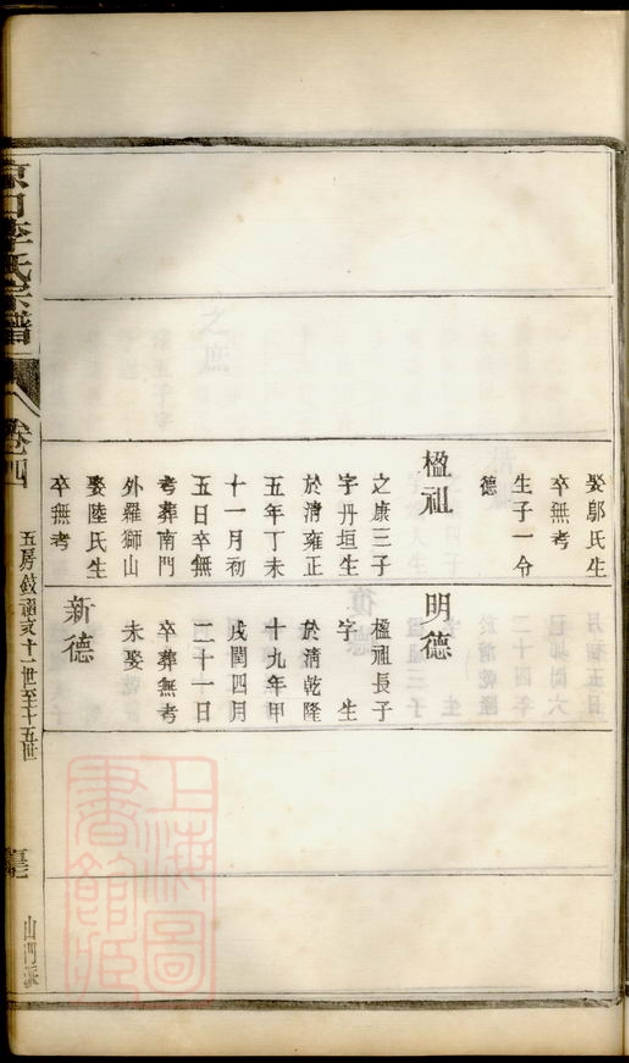 娶鄔氏生
卒無考
生子一令
德
楹祖
之康三子
字丹垣生
於清雍正
五年丁未
十一月初
五日卒無
考葬南門
外羅獅山
娶陸氏生
卒無考
明德
楹祖長子
字　生
於清乾隆
十九年甲
戌閏四月
二十一日
卒葬無考
未娶
新德
口李氏宗譜
卷四
五房敍祖支十一世至十五世
山門派
上海圖書館藏